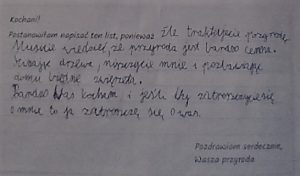 Kochani!
Postanowiłam napisać ten list, ponieważ źle traktujecie przyrodę
Musicie wiedzieć, że przyroda jest bardzo cenna.
drzewa, niszczycie mnie i pozbawiacie
domu biedne zwierzęta.
Bardzo Was kocham i jeśli Wy zatroszczycie się
o mnie to ja zatroszczę się o was.
Pozdrawiam serdecznie,
Wasza przyroda